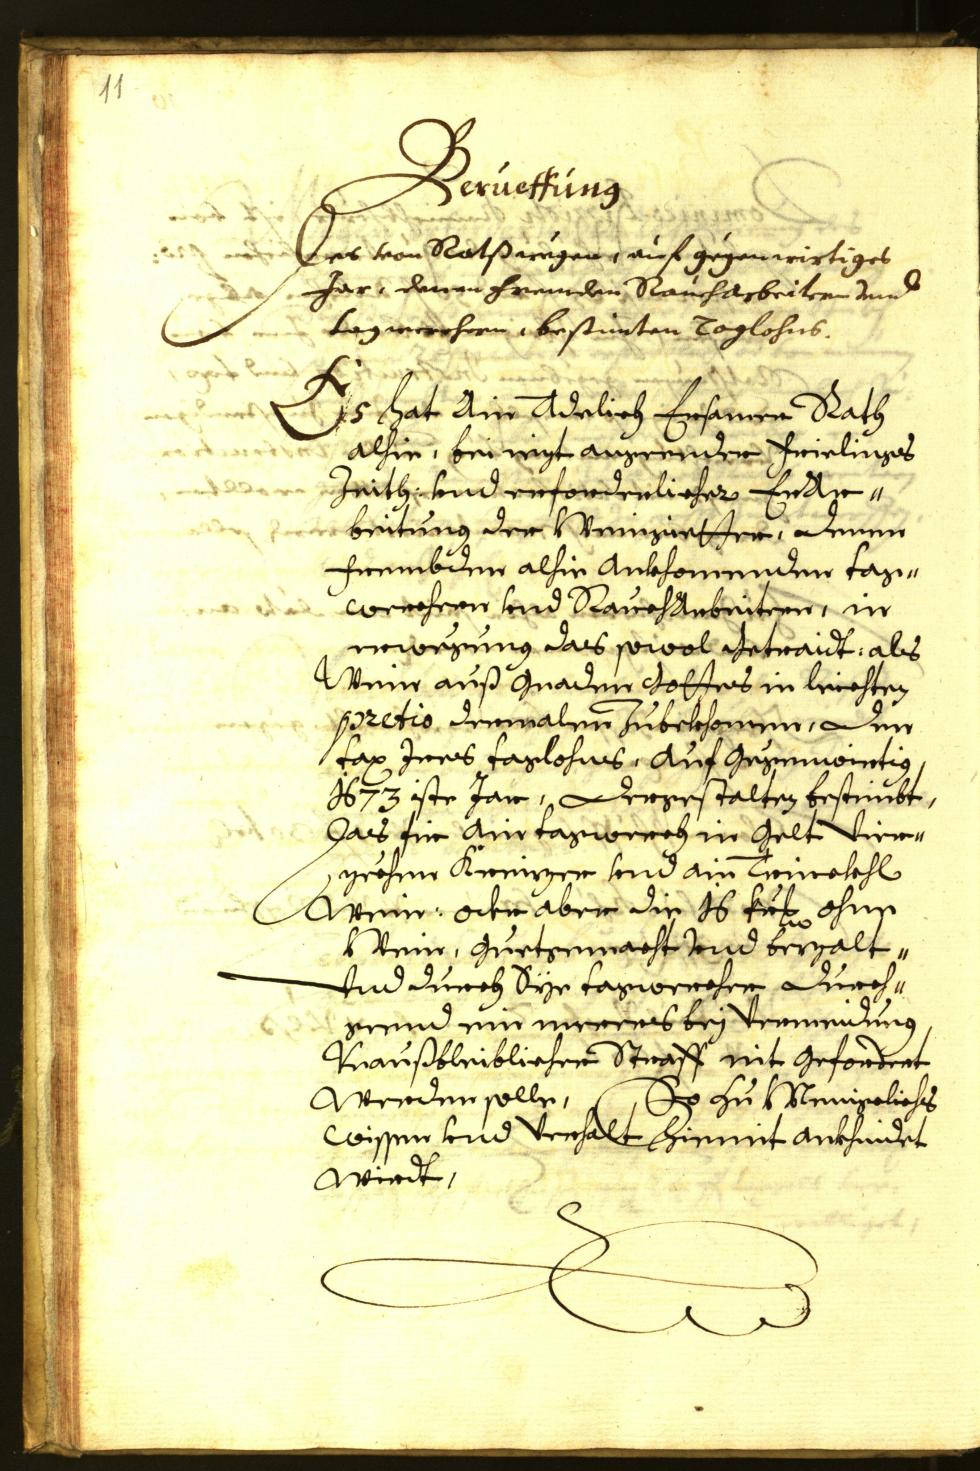 11
Berueffung
Des von Rathswegen, auf gegenwirtiges
Jar, denen frembden Rauharbeitern und
tagwerchern, bestimten Taglohns.
Es hat Ain Adelich Ersamer Rath
alhie, bei iezt angeender Frielings
Zeith: und erforderlicher ErAr-"
beitung der Weingietter, denen
frembden alhie Ankhomenden tag-"
werchern und RauchArbeitern, in
erwegung das sowol Getraidt: als
Wein auß Gnaden Gottes in leichten
pretio dermalen Zubekhomen, Den
tax Ires taglohns, Auf Gegenwirtig,
1673 iste Jar, Dergestalten bestimbt,
Das für Ain tagwerch in Gelt Vier-"
zechen Kreizer und ain Trinckhl
Wein: oder aber die 16 kr ohne
Wein, Guetgemacht und bezalt"
Und durch Sye tagwercher Durch-"
geend nit merers bey Vermeidung,
Unaußbleiblicher Straff nit Gefordert
Werden solle, So zu Meniglichs
wissen und Verhalt hiemit ankhindet
Wirdt,